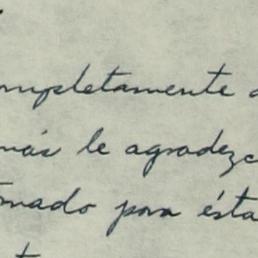 ompletamente a
más le agradezc
omado para ésta